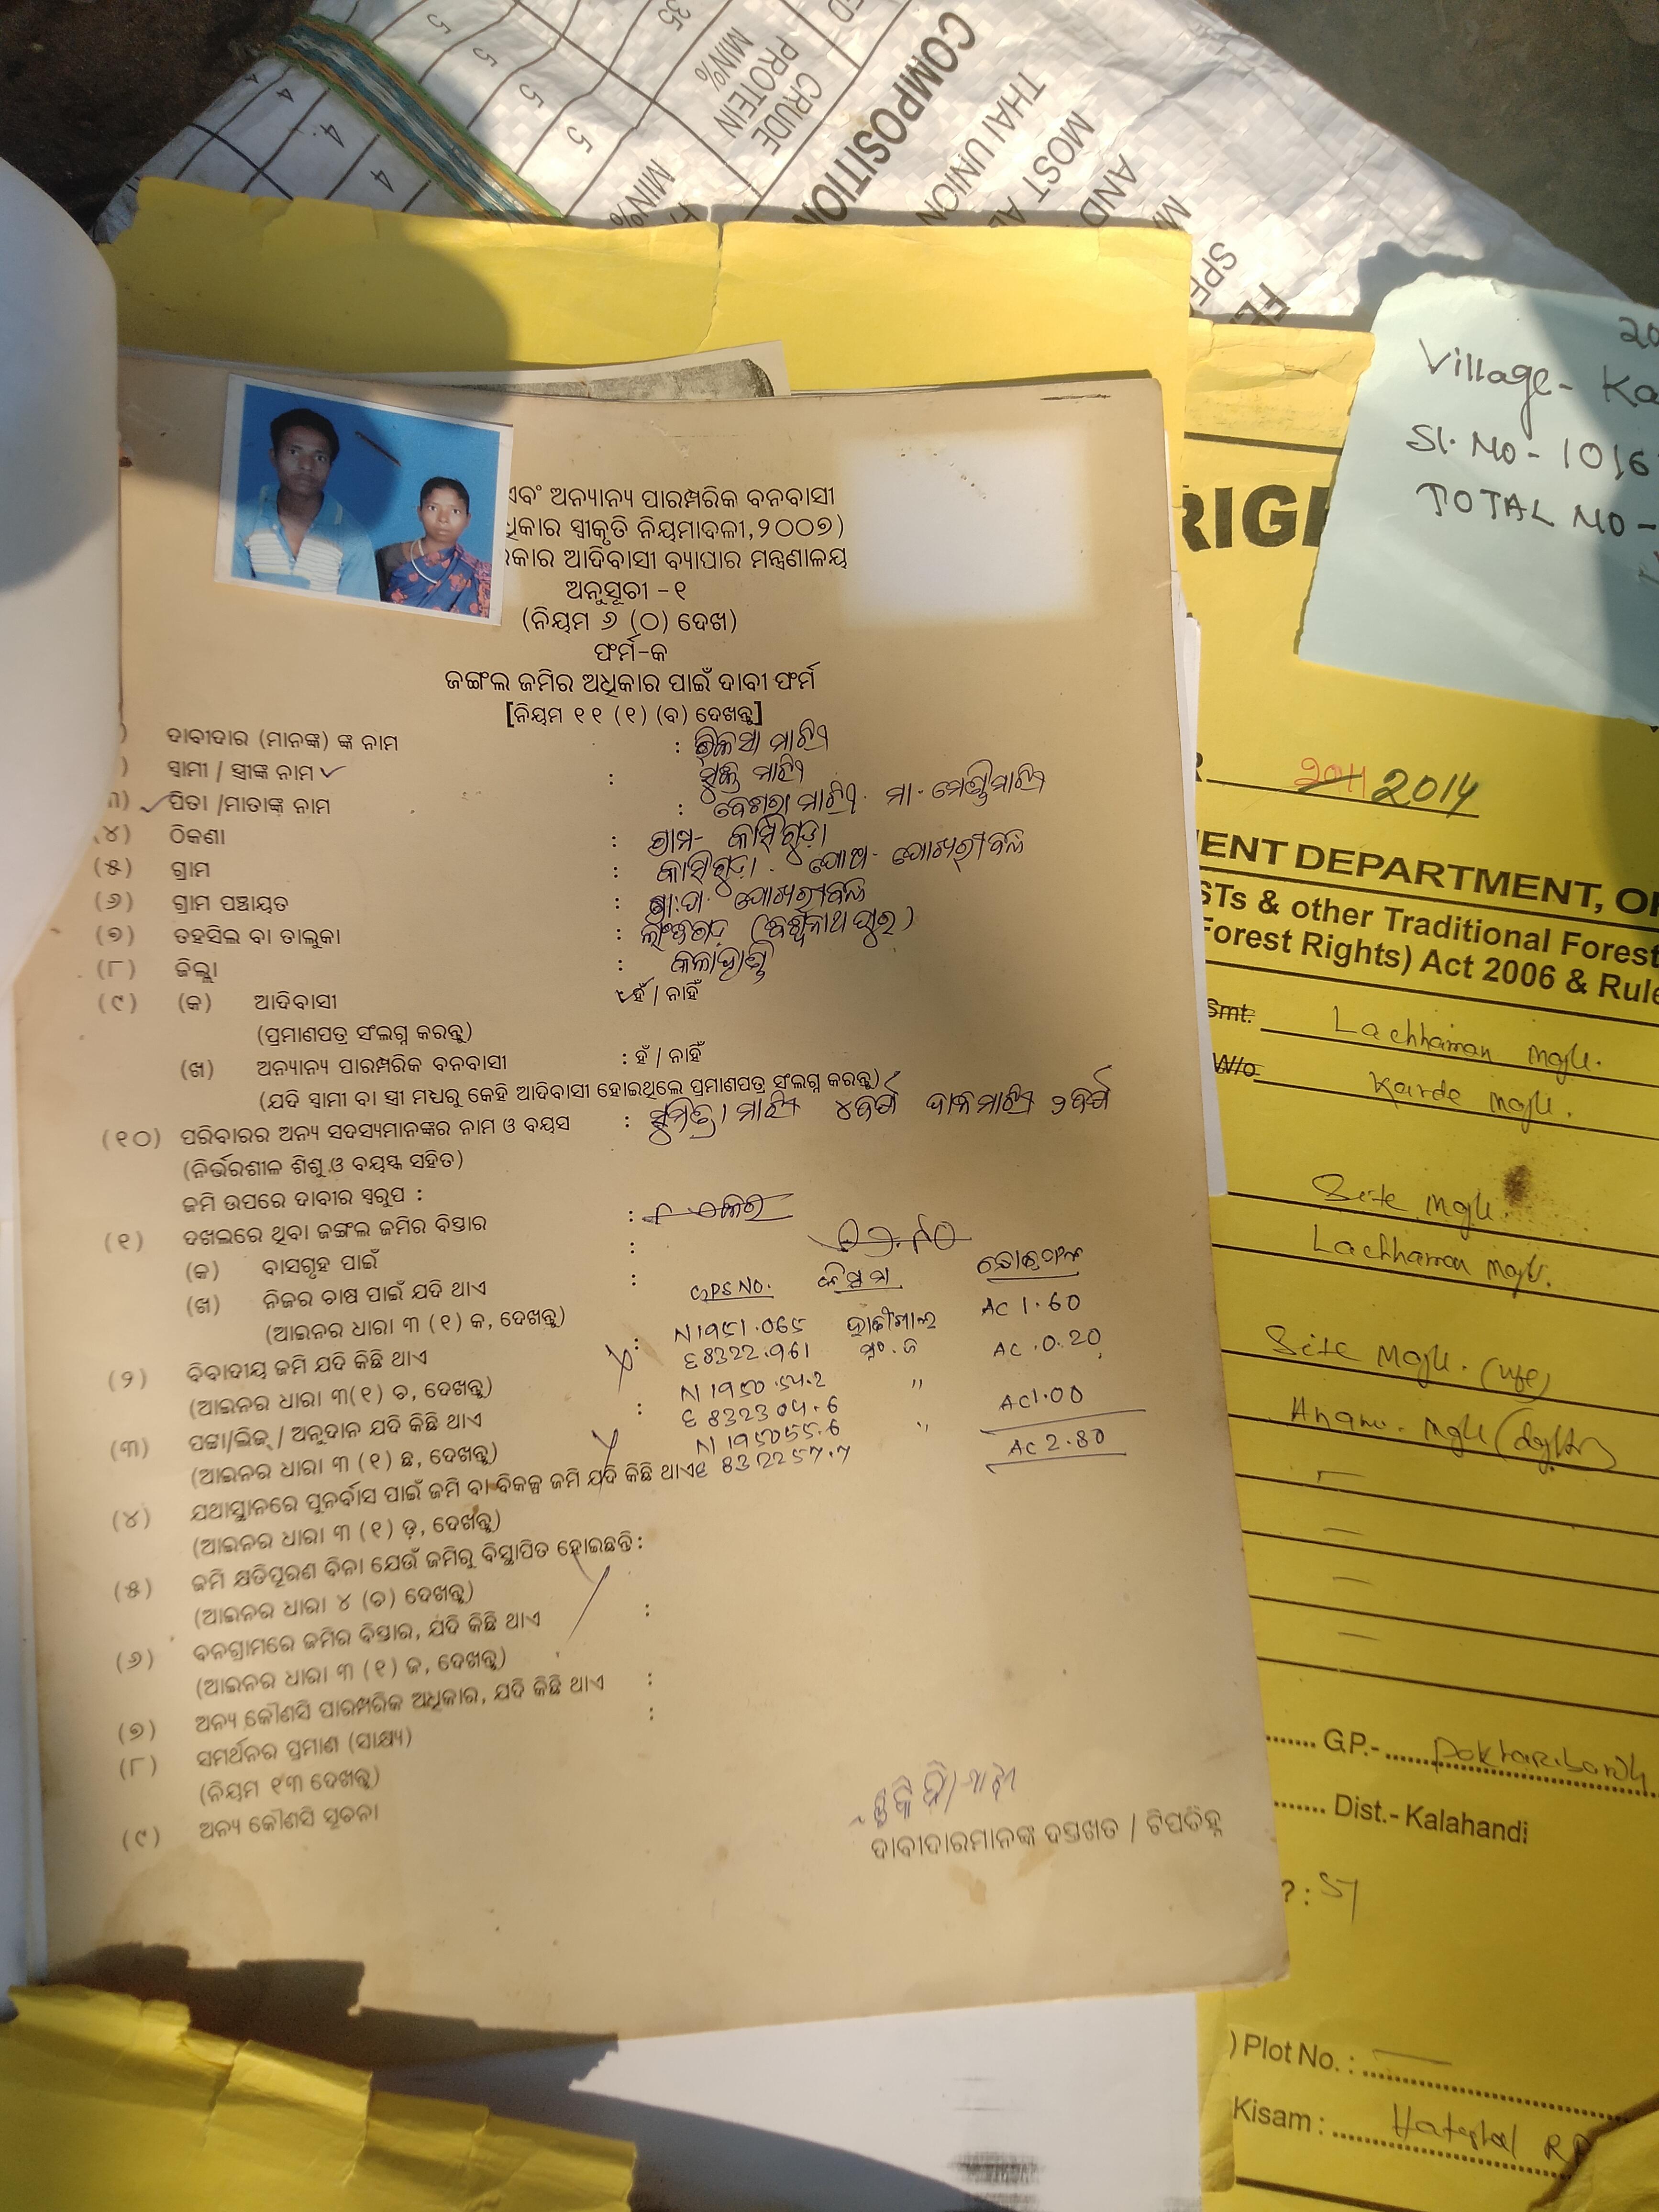 35
5
5
5
5
4
4
4
CRUDE
PROTEIN
MIN%
MIN%
COMPOSITION
THAI UNION
MOST
AND
SPE
FE
20
Village- Ka
Sl. No - 1016
TOTAL NO -
RIGH
ଏବଂ ଅନ୍ୟାନ୍ୟ ପାରମ୍ପରିକ ବନବାସୀ
ଧିକାର ସ୍ୱୀକୃତି ନିୟମାବଳୀ, ୨୦୦୭)
ରକାର ଆଦିବାସୀ ବ୍ୟାପାର ମନ୍ତ୍ରଣାଳୟ
ଅନୁସୂଚୀ -୧
(ନିୟମ ୬ (ଠ) ଦେଖ)
ଫର୍ମ-କ
ଜଙ୍ଗଲ ଜମିର ଅଧିକାର ପାଇଁ ଦାବୀ ଫର୍ମ
[ନିୟମ ୧୧ (୧) (ବ) ଦେଖନ୍ତୁ]
) ଦାବୀଦାର (ମାନଙ୍କ) ଙ୍କ ନାମ : ମାଝି
) ସ୍ୱାମୀ / ସ୍ତ୍ରୀଙ୍କ ନାମ ✓ : ମାଝି
୩) ✓ ପିତା /ମାତାଙ୍କ ନାମ : ମାଝି ମା-
(୪) ଠିକଣା : ଗ୍ରାମ- କାସିଗୁଡ଼ା
(୫) ଗ୍ରାମ : କାସିଗୁଡ଼ା. ପୋଷ୍ଟ- ପୋଖରୀବନ୍ଧ
(୬) ଗ୍ରାମ ପଞ୍ଚାୟତ : ଗ୍ରା.ପ. ପୋଖରୀବନ୍ଧ
(୭) ତହସିଲ ବା ତାଲୁକା : ଲାଂଜିଗଡ଼ (ବିଶ୍ୱନାଥପୁର)
(୮) ଜିଲ୍ଲା : କଳାହାଣ୍ଡି
(୯) (କ) ଆଦିବାସୀ ✓ହଁ / ନାହିଁ
(ପ୍ରମାଣପତ୍ର ସଂଲଗ୍ନ କରନ୍ତୁ)
(ଖ) ଅନ୍ୟାନ୍ୟ ପାରମ୍ପରିକ ବନବାସୀ : ହଁ / ନାହିଁ
(ଯଦି ସ୍ୱାମୀ ବା ସ୍ତ୍ରୀ ମଧ୍ୟରୁ କେହି ଆଦିବାସୀ ହୋଇଥିଲେ ପ୍ରମାଣପତ୍ର ସଂଲଗ୍ନ କରନ୍ତୁ)
(୧୦) ପରିବାରର ଅନ୍ୟ ସଦସ୍ୟମାନଙ୍କର ନାମ ଓ ବୟସ : ସୁମିତ୍ରା ମାଝି ୪ବର୍ଷ ମାଝି ୨ବର୍ଷ
(ନିର୍ଭରଶୀଳ ଶିଶୁ ଓ ବୟସ୍କ ସହିତ)
ଜମି ଉପରେ ଦାବୀର ସ୍ୱରୂପ :
(୧) ଦଖଲରେ ଥିବା ଜଙ୍ଗଲ ଜମିର ବିସ୍ତାର :
(କ) ବାସଗୃହ ପାଇଁ :
(ଖ) ନିଜର ଚାଷ ପାଇଁ ଯଦି ଥାଏ :
GPS NO. କିସମ
(ଆଇନର ଧାରା ୩ (୧) କ, ଦେଖନ୍ତୁ)
N 1951.065 AC 1.60
(୨) ବିବାଦୀୟ ଜମି ଯଦି କିଛି ଥାଏ :
E 8322.961 AC.0.20
(ଆଇନର ଧାରା ୩(୧) ଚ, ଦେଖନ୍ତୁ)
N 1950.54.2 "
(୩) ପଟ୍ଟା/ଲିଜ୍ / ଅନୁଦାନ ଯଦି କିଛି ଥାଏ :
E 832304.6 AC1.00
(ଆଇନର ଧାରା ୩ (୧) ଛ, ଦେଖନ୍ତୁ)
N 195055.6 " AC 2.80
(୪) ଯଥାସ୍ଥାନରେ ପୁନର୍ବାସ ପାଇଁ ଜମି ବା ବିକଳ୍ପ ଜମି ଯଦି କିଛି ଥାଏ E 832257.7
(ଆଇନର ଧାରା ୩ (୧) ଡ଼, ଦେଖନ୍ତୁ)
(୫) ଜମି କ୍ଷତିପୂରଣ ବିନା ଯେଉଁ ଜମିରୁ ବିସ୍ଥାପିତ ହୋଇଛନ୍ତି :
(ଆଇନର ଧାରା ୪ (ଚ) ଦେଖନ୍ତୁ)
(୬) ବନଗ୍ରାମରେ ଜମିର ବିସ୍ତାର, ଯଦି କିଛି ଥାଏ :
(ଆଇନର ଧାରା ୩ (୧) ଜ, ଦେଖନ୍ତୁ)
(୭) ଅନ୍ୟ କୌଣସି ପାରମ୍ପରିକ ଅଧିକାର, ଯଦି କିଛି ଥାଏ :
(୮) ସମର୍ଥନର ପ୍ରମାଣ (ସାକ୍ଷ୍ୟ) :
(ନିୟମ ୧୩ ଦେଖନ୍ତୁ)
(୯) ଅନ୍ୟ କୌଣସି ସୂଚନା
ଦାବୀଦାରମାନଙ୍କ ଦସ୍ତଖତ / ଟିପଚିହ୍ନ
R 2011 2014
ENT DEPARTMENT, O
STs & other Traditional Forest
Forest Rights) Act 2006 & Rule
Smt. Lachhaman Majhi.
W/o Karde Majhi.
Site Majhi.
Lachhaman Majhi.
Site Majhi. (wife)
Majhi (daughter)
GP.- Pokharibandh
Dist.- Kalahandi
? : ST
) Plot No. :
Kisam :